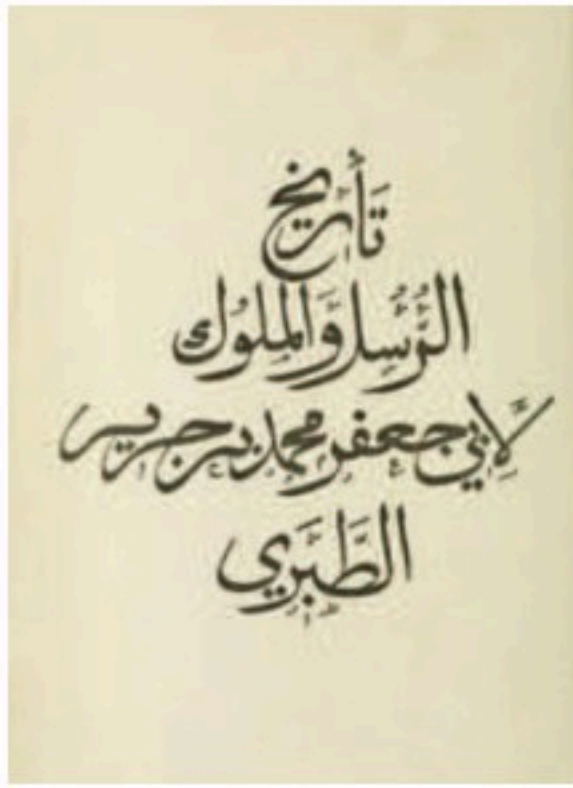 تَأريخ
الرُّسُل وَالملُوك
لَأبي جعفر محمد بن جرير
الطَّبَري